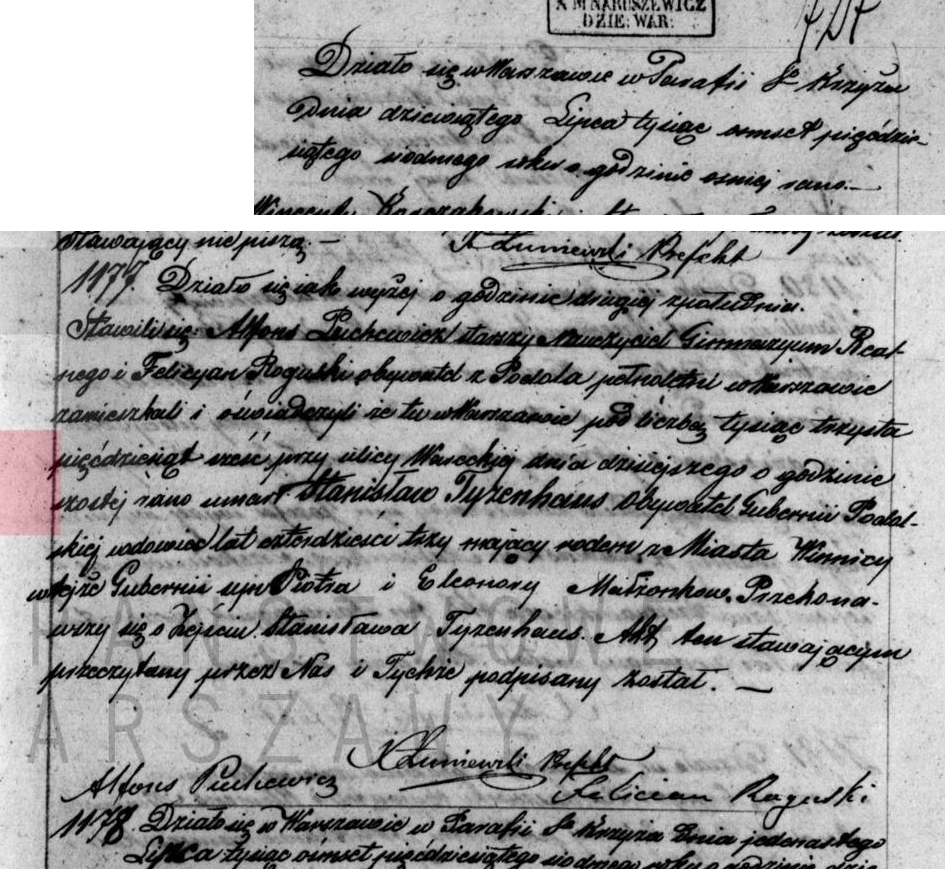 X M NARUSZEWICZ
DZIE: WAR:
Działo się w Warszawie w Parafii Sº Krzyża
Dnia dziewiątego Lipca tysiąc osmset pięćdzie-
siątego siódmego roku o godzinie osmej rano.—
Wincenty
Stawający niepiszą. — X Łuniewski Prefekt
1177. Działo się iak wyżej o godzinie drugiej z południa.
Stawili się: Alfons Puchewicz starszy Nauczyciel Gimnazyum Real-
nego i Felicyan Roguski obywatel z Podola pełnoletni w Warszawie
zamieszkali i oświadczyli że tu w Warszawie pod liczbą tysiąc trzysta
pięćdziesiąt sześć przy ulicy Wareckiej dnia dzisiejszego o godzinie
szóstej rano umarł Stanisław Tyzenhaus Obywatel Gubernii Podol-
skiej wdowiec lat czterdzieści trzy mający rodem z Miasta Winnicy
w tejże Gubernii syn Piotra i Eleonory Małżonków. Przekona-
wszy się o Zejściu Stanisława Tyzenhaus. Akt ten stawającym
przeczytany przez Nas i Tychże podpisany został. —
X Łuniewski Prefekt
Alfons Puchewicz Felician Roguski
1178. Działo się w Warszawie w Parafii Sº Krzyża Dnia jedenastego
Lipca tysiąc ośmset pięćdziesiątego siódmego roku o godzinie
PAŃSTWOWE
WARSZAWY